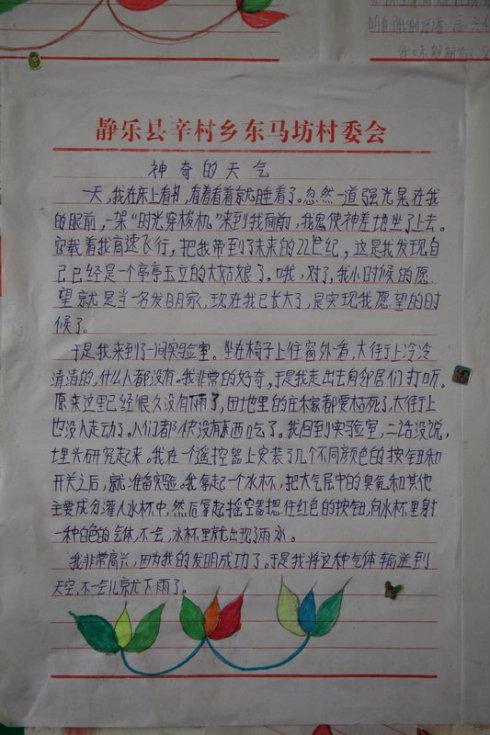 静乐县辛村乡东马坊村委会
神奇的天气
一天,我在床上看书,看着看着就睡着了。忽然一道强光晃在我
的眼前,一架“时光穿梭机”来到我面前,我鬼使神差地坐了上去。
它载着我高速飞行,把我带到了未来的22世纪,这是我发现自
己已经是一个亭亭玉立的大姑娘了。哦,对了,我小时候的愿
望就是当一名发明家,现在我已长大了,是实现我愿望的时
候了。
于是我来到了一间实验室。坐在椅子上往窗外一看,大街上冷冷
清清的,什么人都没有。我非常的好奇,于是我走出去向邻居们打听。
原来这里已经很久没有下雨了,田地里的庄稼都要枯死了,大街上
也没人走动了。人们都快没有东西吃了。我回到实验室,二话没说,
埋头研究起来。我在一个遥控器上安装了几个不同颜色的按钮和
开关之后,就准备实验。我拿起一个水杯,把大气层中的臭氧和其他
主要成分灌入水杯中,然后拿起摇空器摁住红色的按钮,向水杯里射
一种白色的气体,不一会,水杯里就出现了雨水。
我非常高兴,因为我的发明成功了。于是我将这种气体输送到
天空,不一会儿就下雨了。